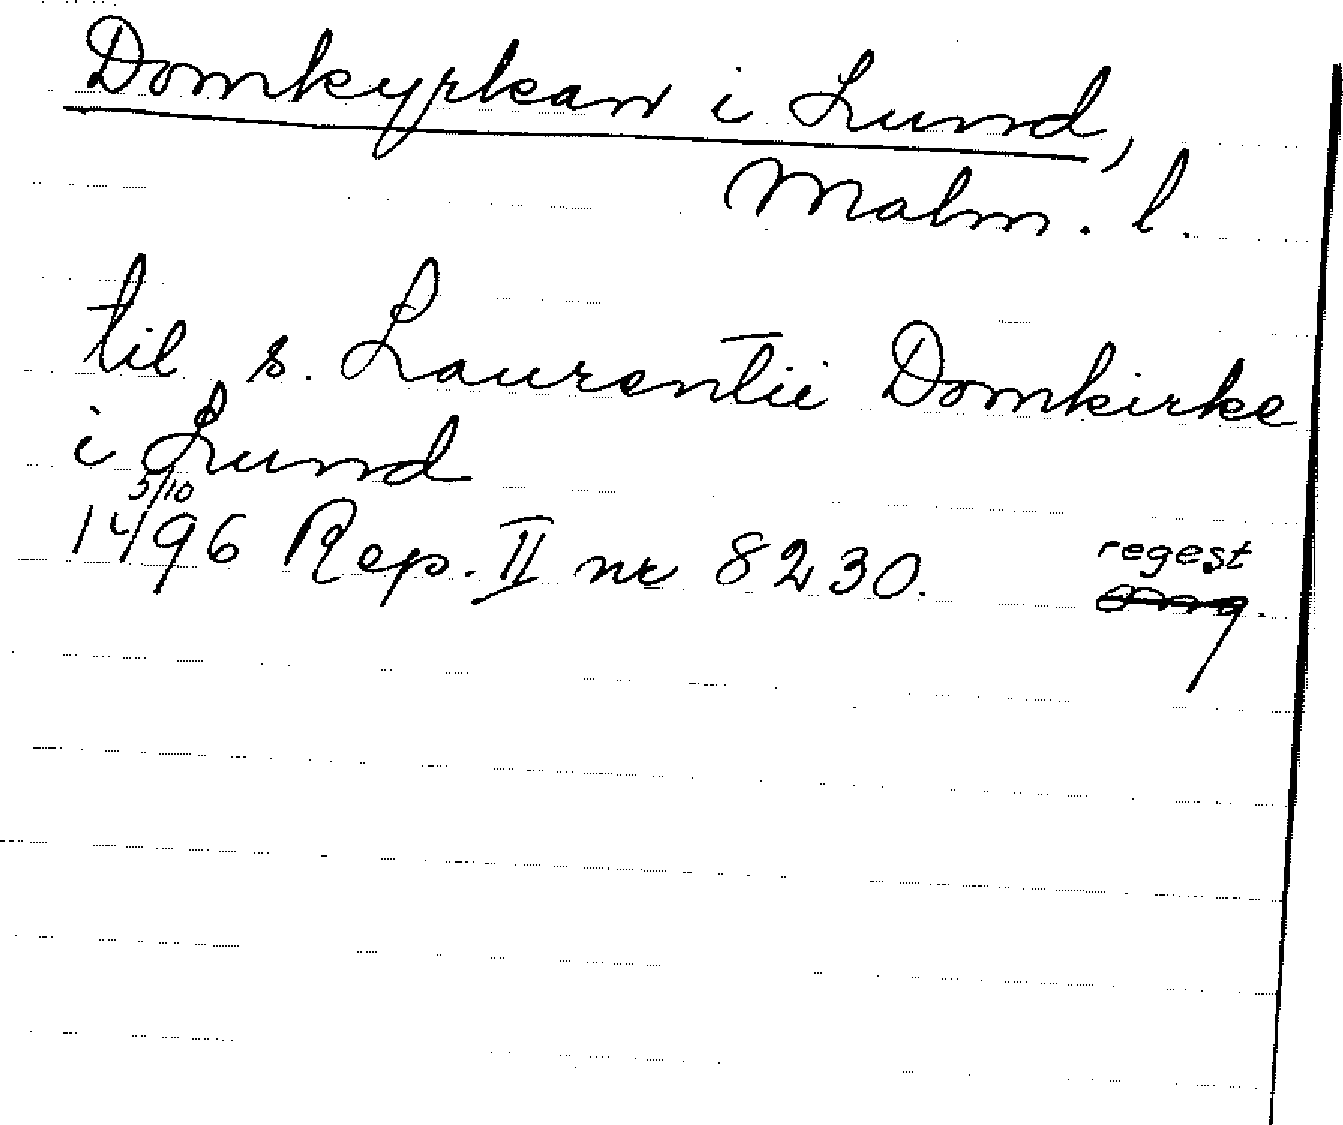 Domkyrkan i Lund,
Malm. l.
til s. Laurentii Domkirke
i Lund
5/10
1496 Rep. II nr 8230.
regest